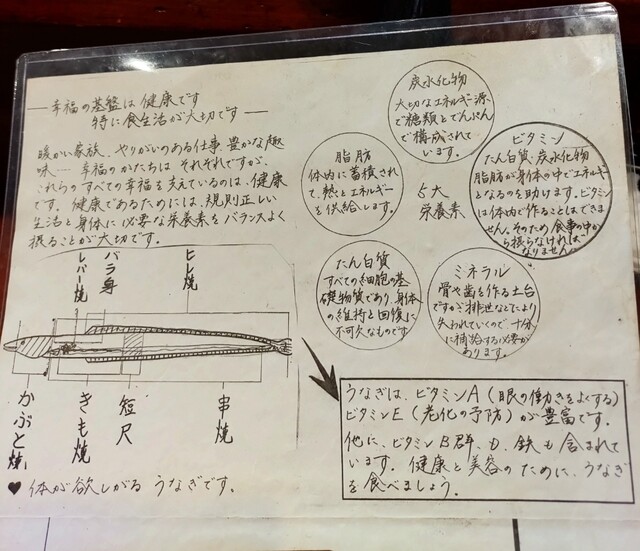 ― 幸福の基盤は健康です
特に食生活が大切です ―
暖かい家族、やりがいのある仕事、豊かな趣
味… 幸福のかたちは それぞれですが、
これらのすべての幸福を支えているのは、健康
です。健康であるためには、規則正しい
生活と身体に必要な栄養素をバランスよく
摂ることが大切です。
炭水化物
大切なエネルギー源
で糖類とでんぷん
で構成されて
います。
脂肪
体内に蓄積され
て、熱とエネルギー
を供給します。
5大
栄養素
ビタミン
たん白質、炭水化物
脂肪が身体の中でエネルギー
となるのを助けます。ビタミン
は体内で作ることはできま
せん。そのため食事の中か
ら摂らなければ
なりません。
たん白質
すべての細胞の基
礎物質であり、身体
の維持と回復に
不可欠なものです
ミネラル
骨や歯を作る土台
ですが排泄などにより
失われていくので、十分
に補給する必要が
あります。
レバー焼
バラ身
ヒレ焼
かぶと焼
きも焼
短尺
串焼
♥ 体が欲しがる うなぎです。
うなぎは、ビタミンA(眼の働きをよくする)
ビタミンE(老化の予防)が豊富です。
他に、ビタミンB群、D、鉄も含まれて
います。健康と美容のために、うなぎ
を食べましょう。